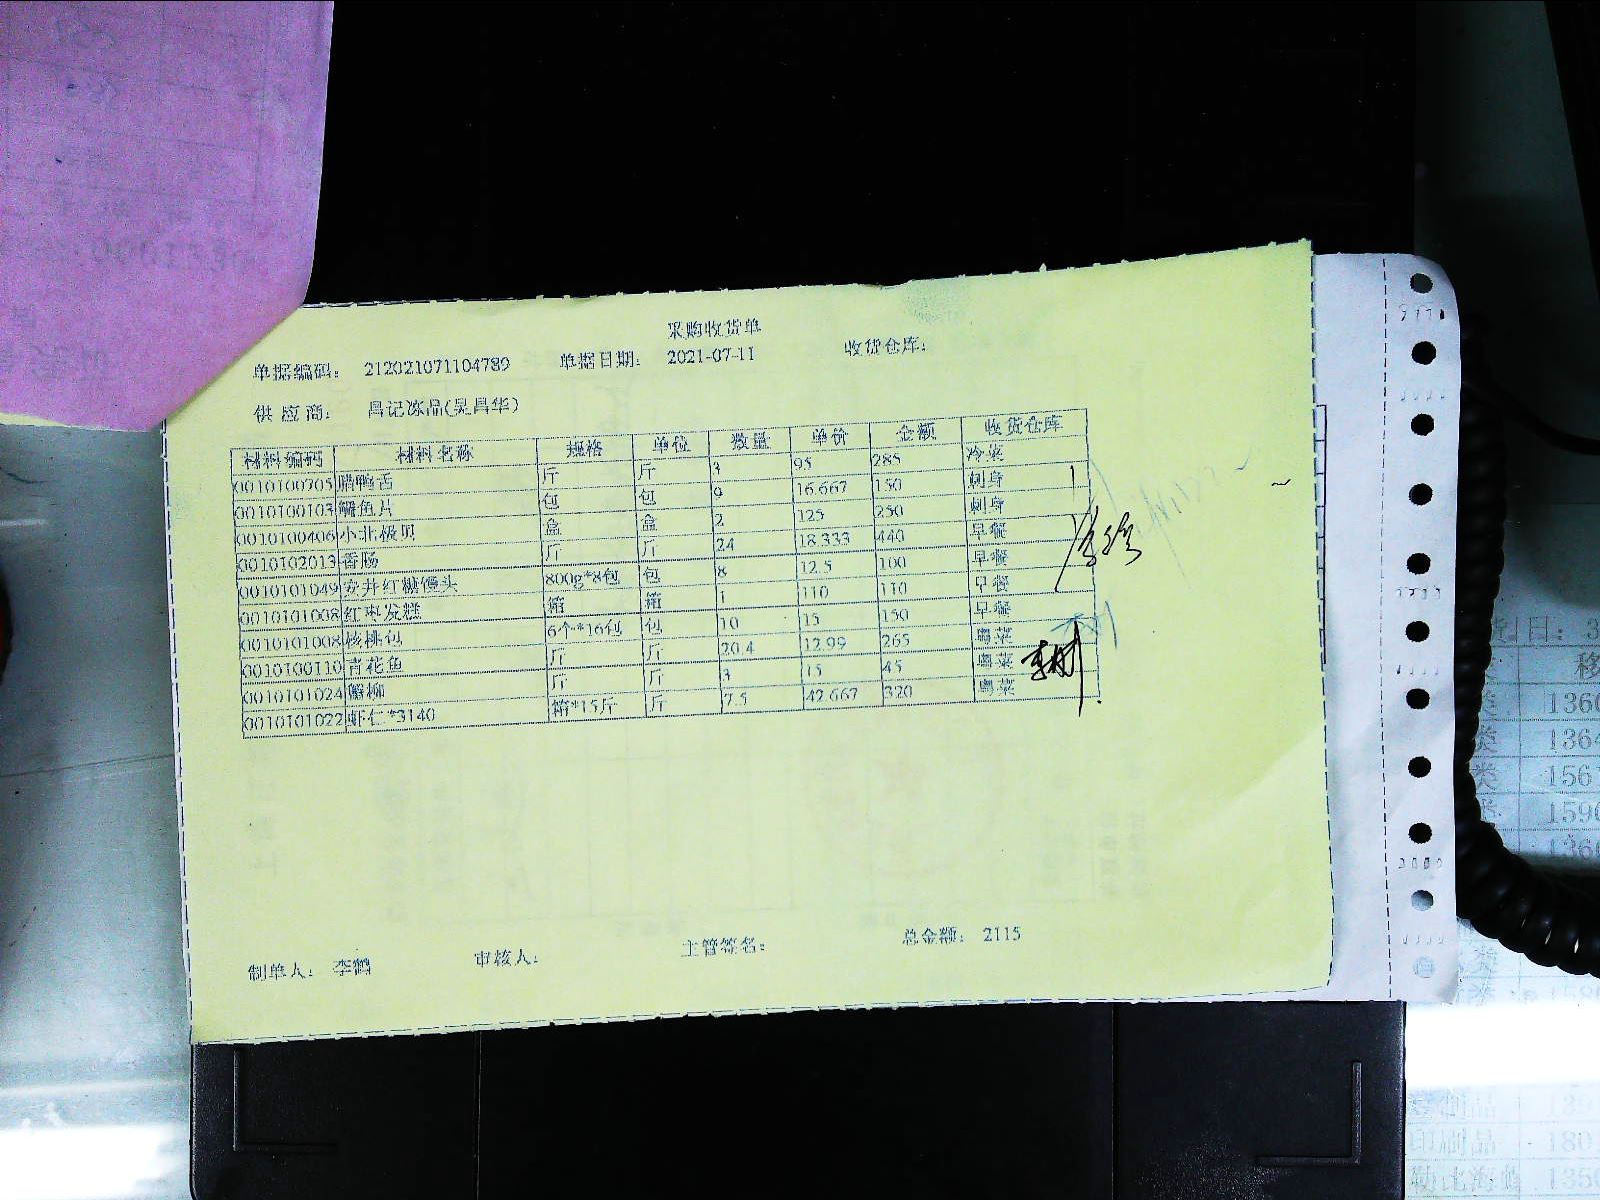 采购收货单
单据编码： 212021071104789 单据日期： 2021-07-11 收货仓库：
供应商： 昌记冻品(吴昌华)
材料编码 材料名称 规格 单位 数量 单价 金额 收货仓库
0010100705 腊鸭舌 斤 斤 3 95 285 冷菜
0010100103 鲷鱼片 包 包 9 16.667 150 刺身
0010100406 小北极贝 盒 盒 2 125 250 刺身
0010102013 香肠 斤 斤 24 18.333 440 早餐
0010101049 安井红糖馒头 800g*8包 包 8 12.5 100 早餐
0010101008 红枣发糕 箱 箱 1 110 110 早餐
0010101008 核桃包 6个*16包 包 10 15 150 早餐
0010100110 青花鱼 斤 斤 20.4 12.99 265 粤菜
0010101024 蟹柳 斤 斤 3 15 45 粤菜
0010101022 虾仁*3140 箱*15斤 斤 7.5 42.667 320 粤菜
制单人： 李鹤 审核人： 主管签名： 总金额： 2115